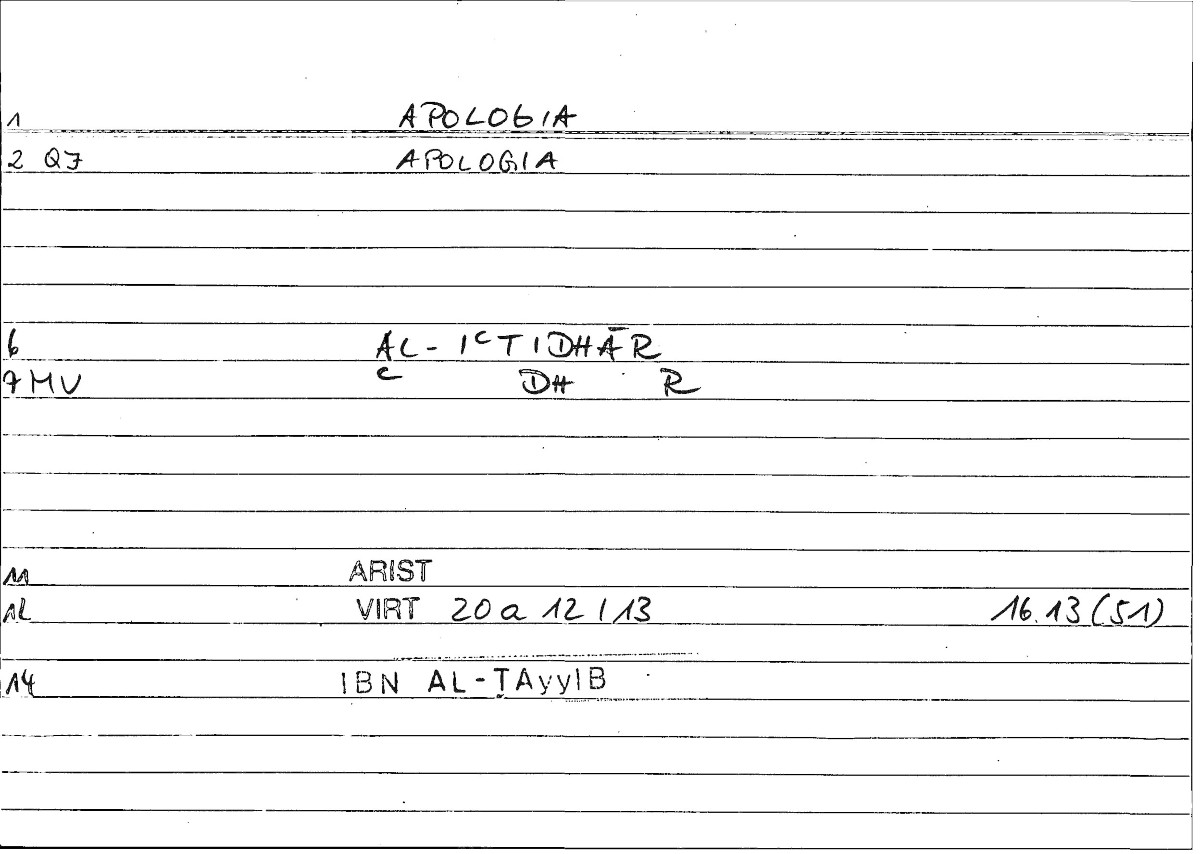 1 APOLOGIA
2 QJ APOLOGIA
6 AL-IᶜTIDHĀR
7 MV ᶜ DH R
11 ARIST
12 VIRT 20a 12/13 16.13(51)
14 IBN AL-ṬAyyIB